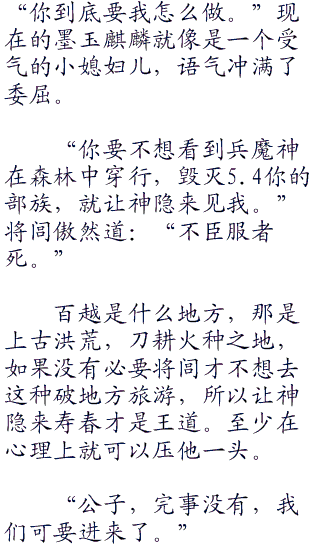 “你到底要我怎么做。”现
在的墨玉麒麟就像是一个受
气的小媳妇儿，语气冲满了
委屈。
“你要不想看到兵魔神
在森林中穿行，毁灭5.4你的
部族，就让神隐来见我。”
将闾傲然道：“不臣服者
死。”
百越是什么地方，那是
上古洪荒，刀耕火种之地，
如果没有必要将闾才不想去
这种破地方旅游，所以让神
隐来寿春才是王道。至少在
心理上就可以压他一头。
“公子，完事没有，我
们可要进来了。”